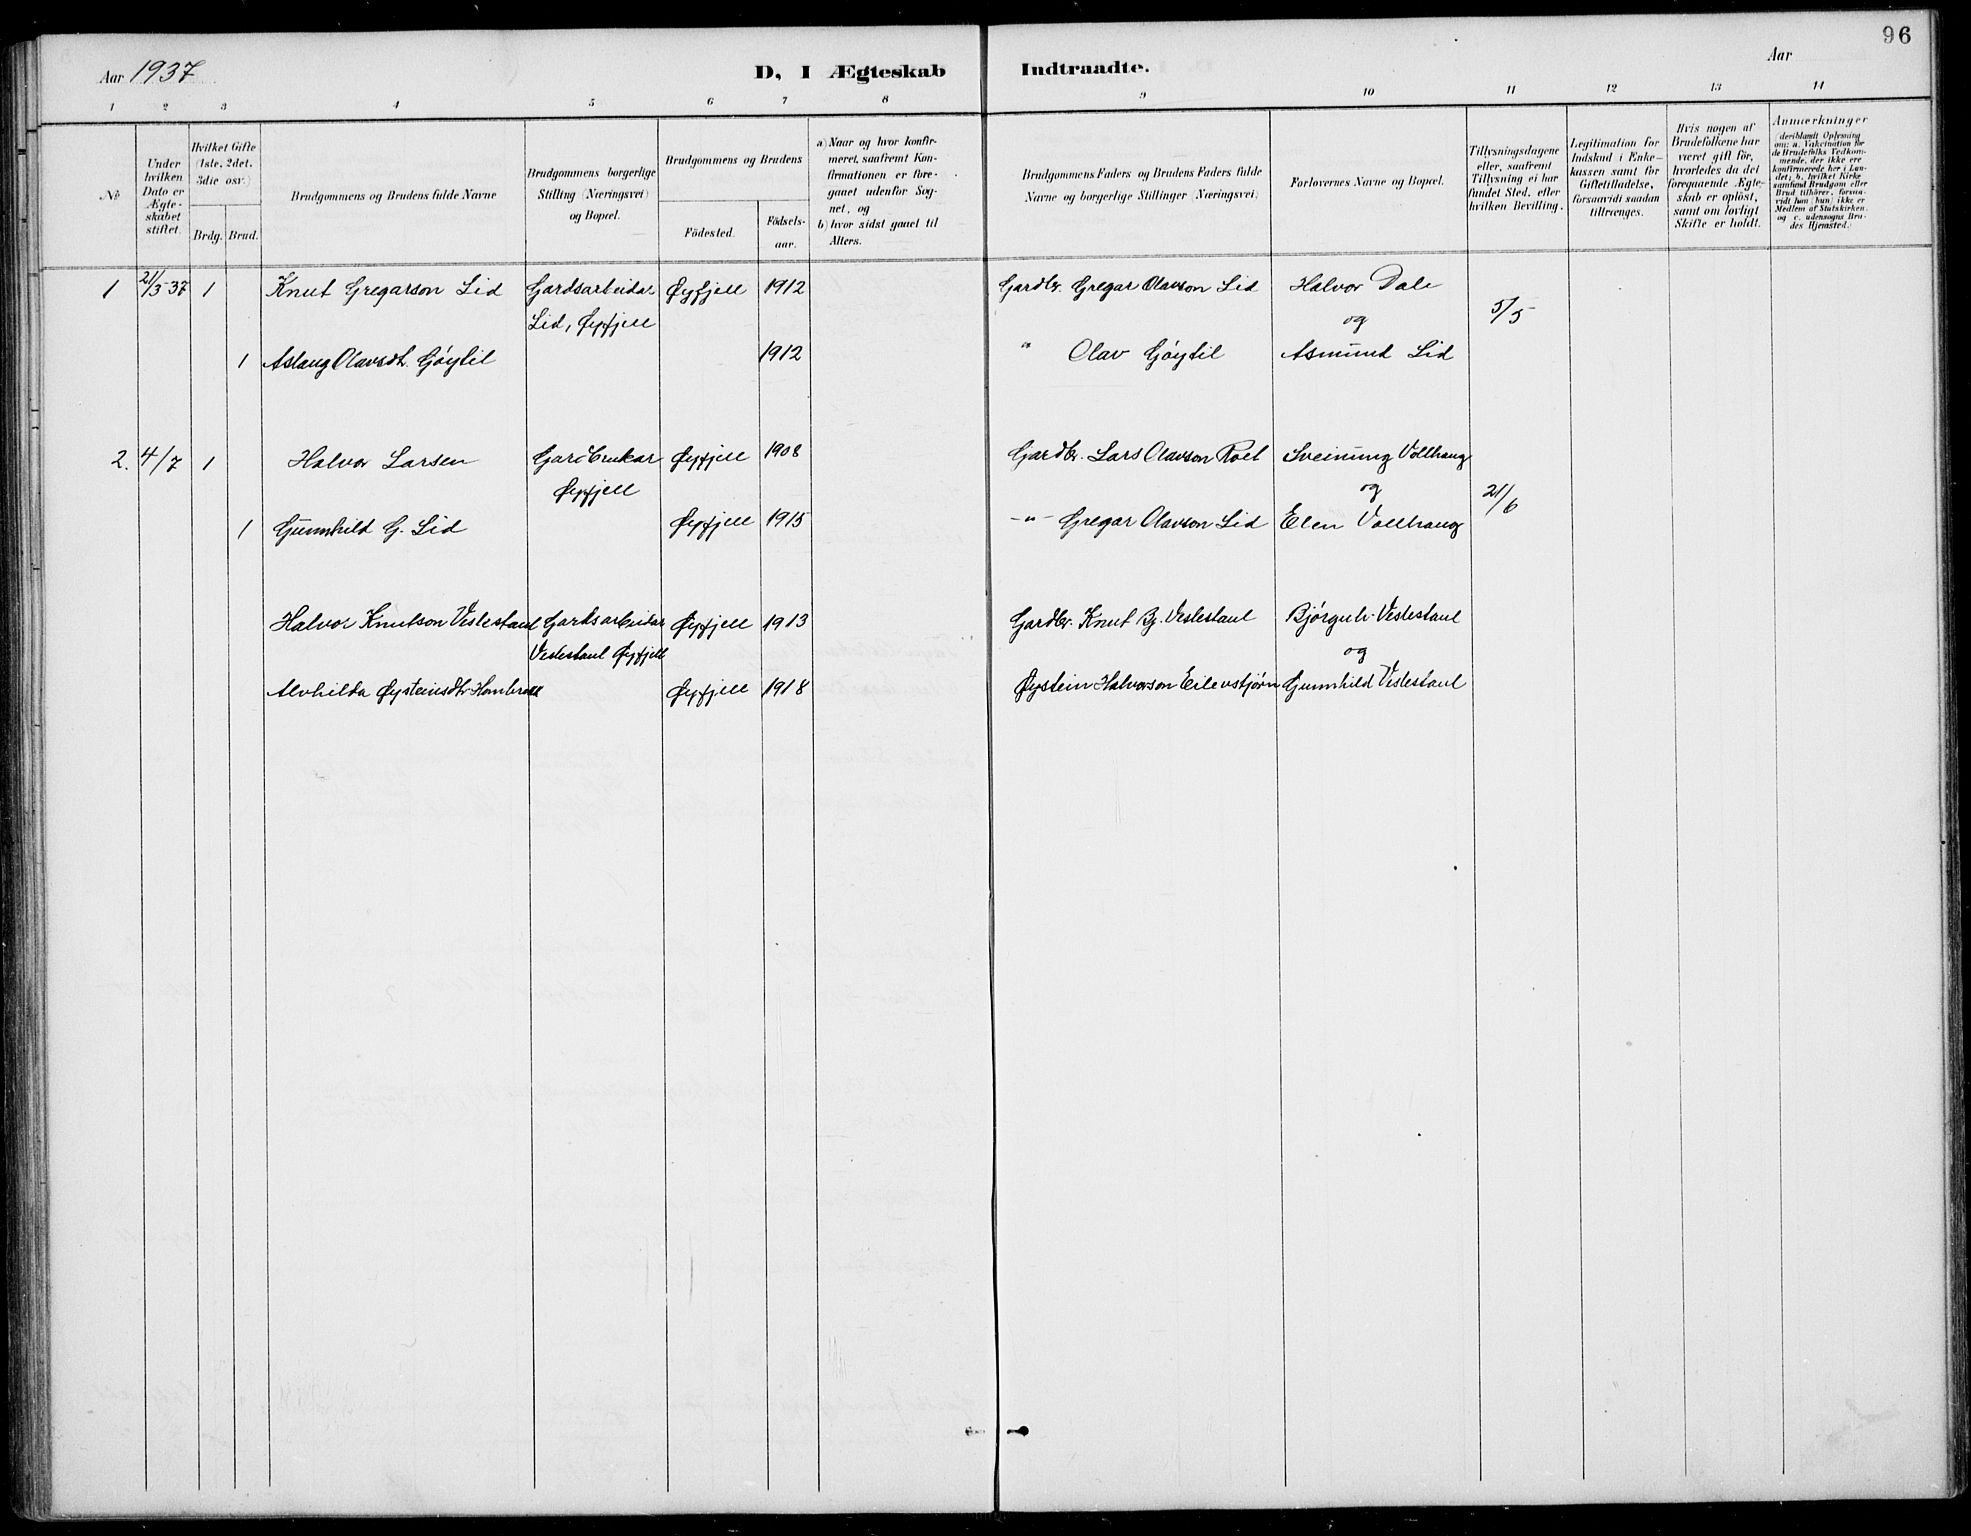 96
Aar 1937 D, I Ægteskab Indtraadte. Aar
1 2 3 4 5 6 7 8 9 10 11 12 13 14
№
Under hvilken Dato er Ægteskabet stiftet.
Hvilket Gifte (1ste, 2det, 3die osv.)
Brdg. Brud.
Brudgommens og Brudens fulde Navne
Brudgommens borgerlige Stilling (Næringsvei) og Bopæl.
Brudgommens og Brudens
Födested.
Födselsaar.
a) Naar og hvor konfirmeret, saafremt Konfirmationen er foregaaet udenfor Sognet, og
b) hvor sidst gaaet til Alters.
Brudgommens Faders og Brudens Faders fulde Navne og borgerlige Stillinger (Næringsvei)
Forlovernes Navne og Bopæl.
Tillysningsdagene eller, saafremt Tillysning ei har fundet Sted, efter hvilken Bevilling.
Legitimation for Indskud i Enkekassen samt for Giftetilladelse, forsaavidt saadan tiltrænges.
Hvis nogen af Brudefolkene har været gift för, hvorledes da det foregaaende Ægteskab er oplöst, samt om lovligt Skifte er holdt.
Anmærkninger (deriblandt Oplysning om: a. Vakcination for de Brudefolks Vedkommende, der ikke ere konfirmerede her i Landet; b. hvilket Kirkesamfund Brudgom eller Brud tilhörer, forsaavidt han (hun) ikke er Medlem af Statskirken, og c. udensogns Brudes Hjemsted.)
1 21/5-37 1 Knut Gregarson Lid Gardsarbeidar Øyfjell 1912 Gardbr. Gregar Olavson Lid Halvor Dale
Lid, Øyfjell og 5/5
1 Aslaug Olavsdt. Gøytil 1912 " Olav Gøytil Asmund Lid
2. 4/7 1 Halvor Larsen Gardbrukar Øyfjell 1908 Gardbr. Lars Olavson Roet Sveinung Vollhaug
Øyfjell og 21/6
1 Gunnhild G. Lid Øyfjell 1915 -"- Gregar Olavson Lid Elen Vollhaug
Halvor Knutson Vestestaul Gardsarbeidar Øyfjell 1913 Gardbr. Knut Bj. Vestestaul Bjørgulv Vestestaul
Vestestaul Øyfjell og
Alvhilda Øysteinsdtr Øyfjell 1918 Øystein Halvorson Eilevstjønn Gunnhild Vestestaul